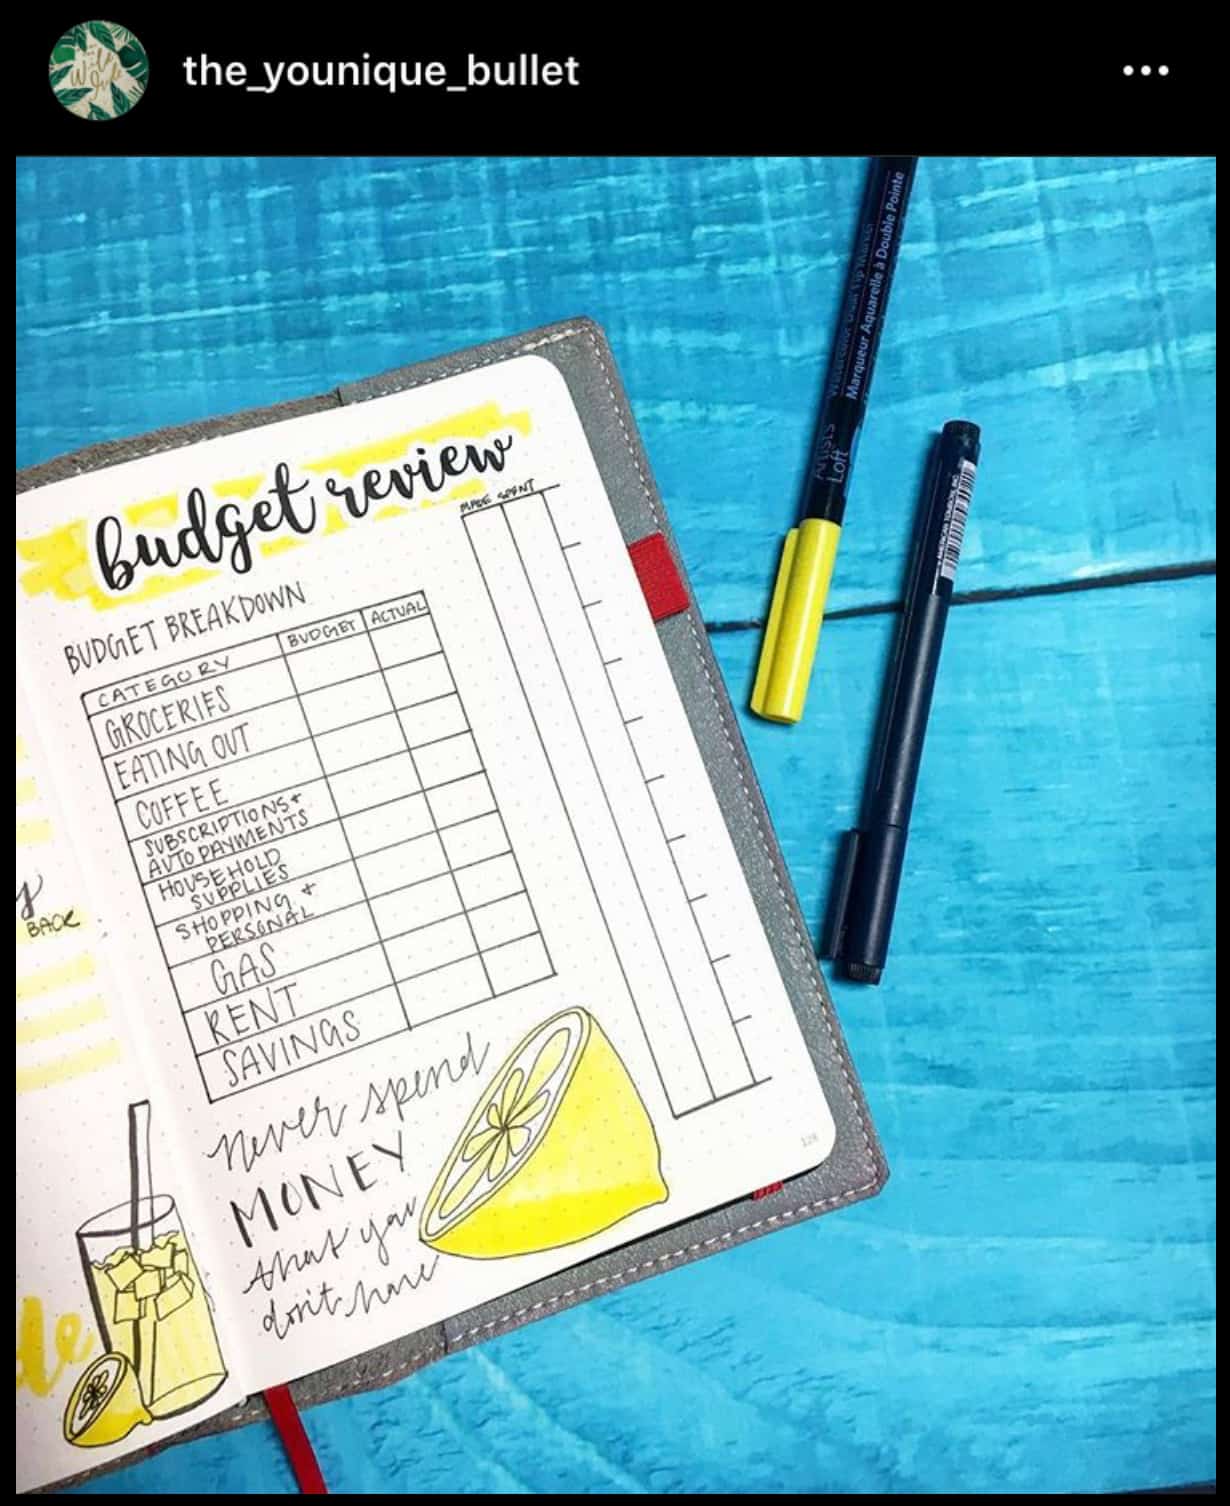 the_younique_bullet
budget review
MADE SPENT
BUDGET BREAKDOWN
CATEGORY BUDGET ACTUAL
GROCERIES
EATING OUT
COFFEE
SUBSCRIPTIONS+
AUTO PAYMENTS
HOUSEHOLD
SUPPLIES
SHOPPING +
PERSONAL
GAS
RENT
SAVINGS
never spend
MONEY
that you
don't have
128
BACK
de
Artist's
Loft
Marqueur Aquarelle à Double Pointe